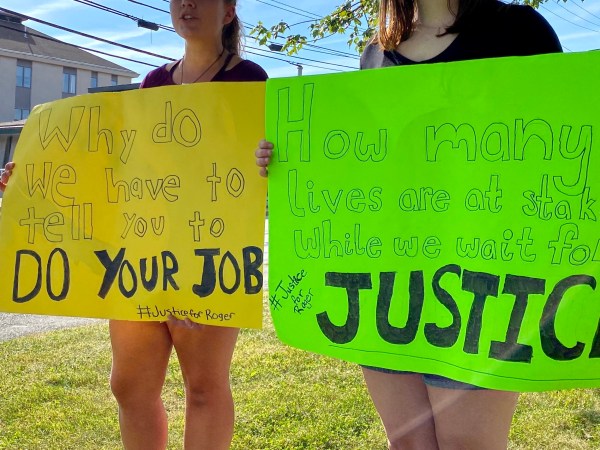 Why do
We have to
tell you to
DO YOUR JOB
#JusticeforRoger
How many
Lives are at stak
While we wait fo
JUSTIC
#Justice
for
Roger